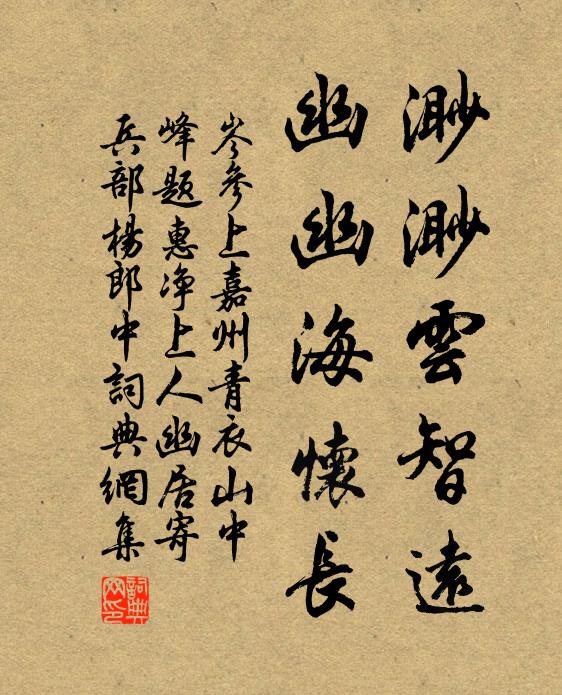 渺渺雲智遠
幽幽海懷長
岑參上嘉州青衣山中
峰題惠净上人幽居寄
兵部楊郎中詞典網集
詞典网印